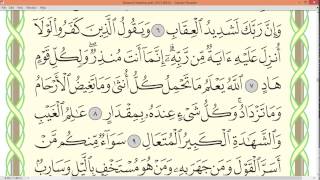 وَإِنَّ رَبَّكَ لَشَدِيدُ ٱلْعِقَابِ ٦ وَيَقُولُ ٱلَّذِينَ كَفَرُوا۟ لَوْلَآ
أُنزِلَ عَلَيْهِ ءَايَةٌ مِّن رَّبِّهِۦٓ ۗ إِنَّمَآ أَنتَ مُنذِرٌ ۖ وَلِكُلِّ قَوْمٍ هَادٍ
٧ ٱللَّهُ يَعْلَمُ مَا تَحْمِلُ كُلُّ أُنثَىٰ وَمَا تَغِيضُ ٱلْأَرْحَامُ
وَمَا تَزْدَادُ ۖ وَكُلُّ شَىْءٍ عِندَهُۥ بِمِقْدَارٍ ٨ عَـٰلِمُ ٱلْغَيْبِ
وَٱلشَّهَـٰدَةِ ٱلْكَبِيرُ ٱلْمُتَعَالِ ٩ سَوَآءٌ مِّنكُم مَّنْ
أَسَرَّ ٱلْقَوْلَ وَمَن جَهَرَ بِهِۦ وَمَنْ هُوَ مُسْتَخْفٍۭ بِٱلَّيْلِ وَسَارِبٌۢ